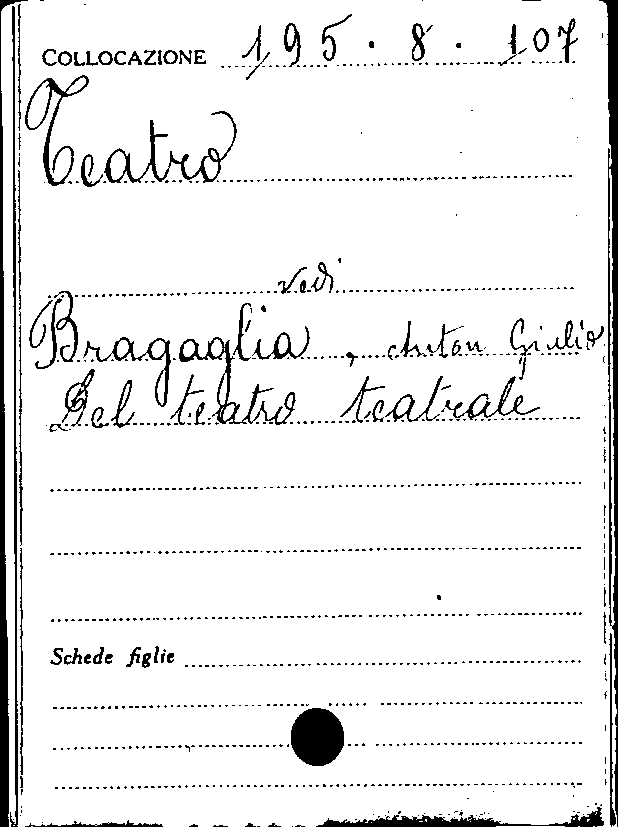 COLLOCAZIONE 195.8.107
Teatro
vedi
Bragaglia, Anton Giulio
Del teatro teatrale
Schede figlie